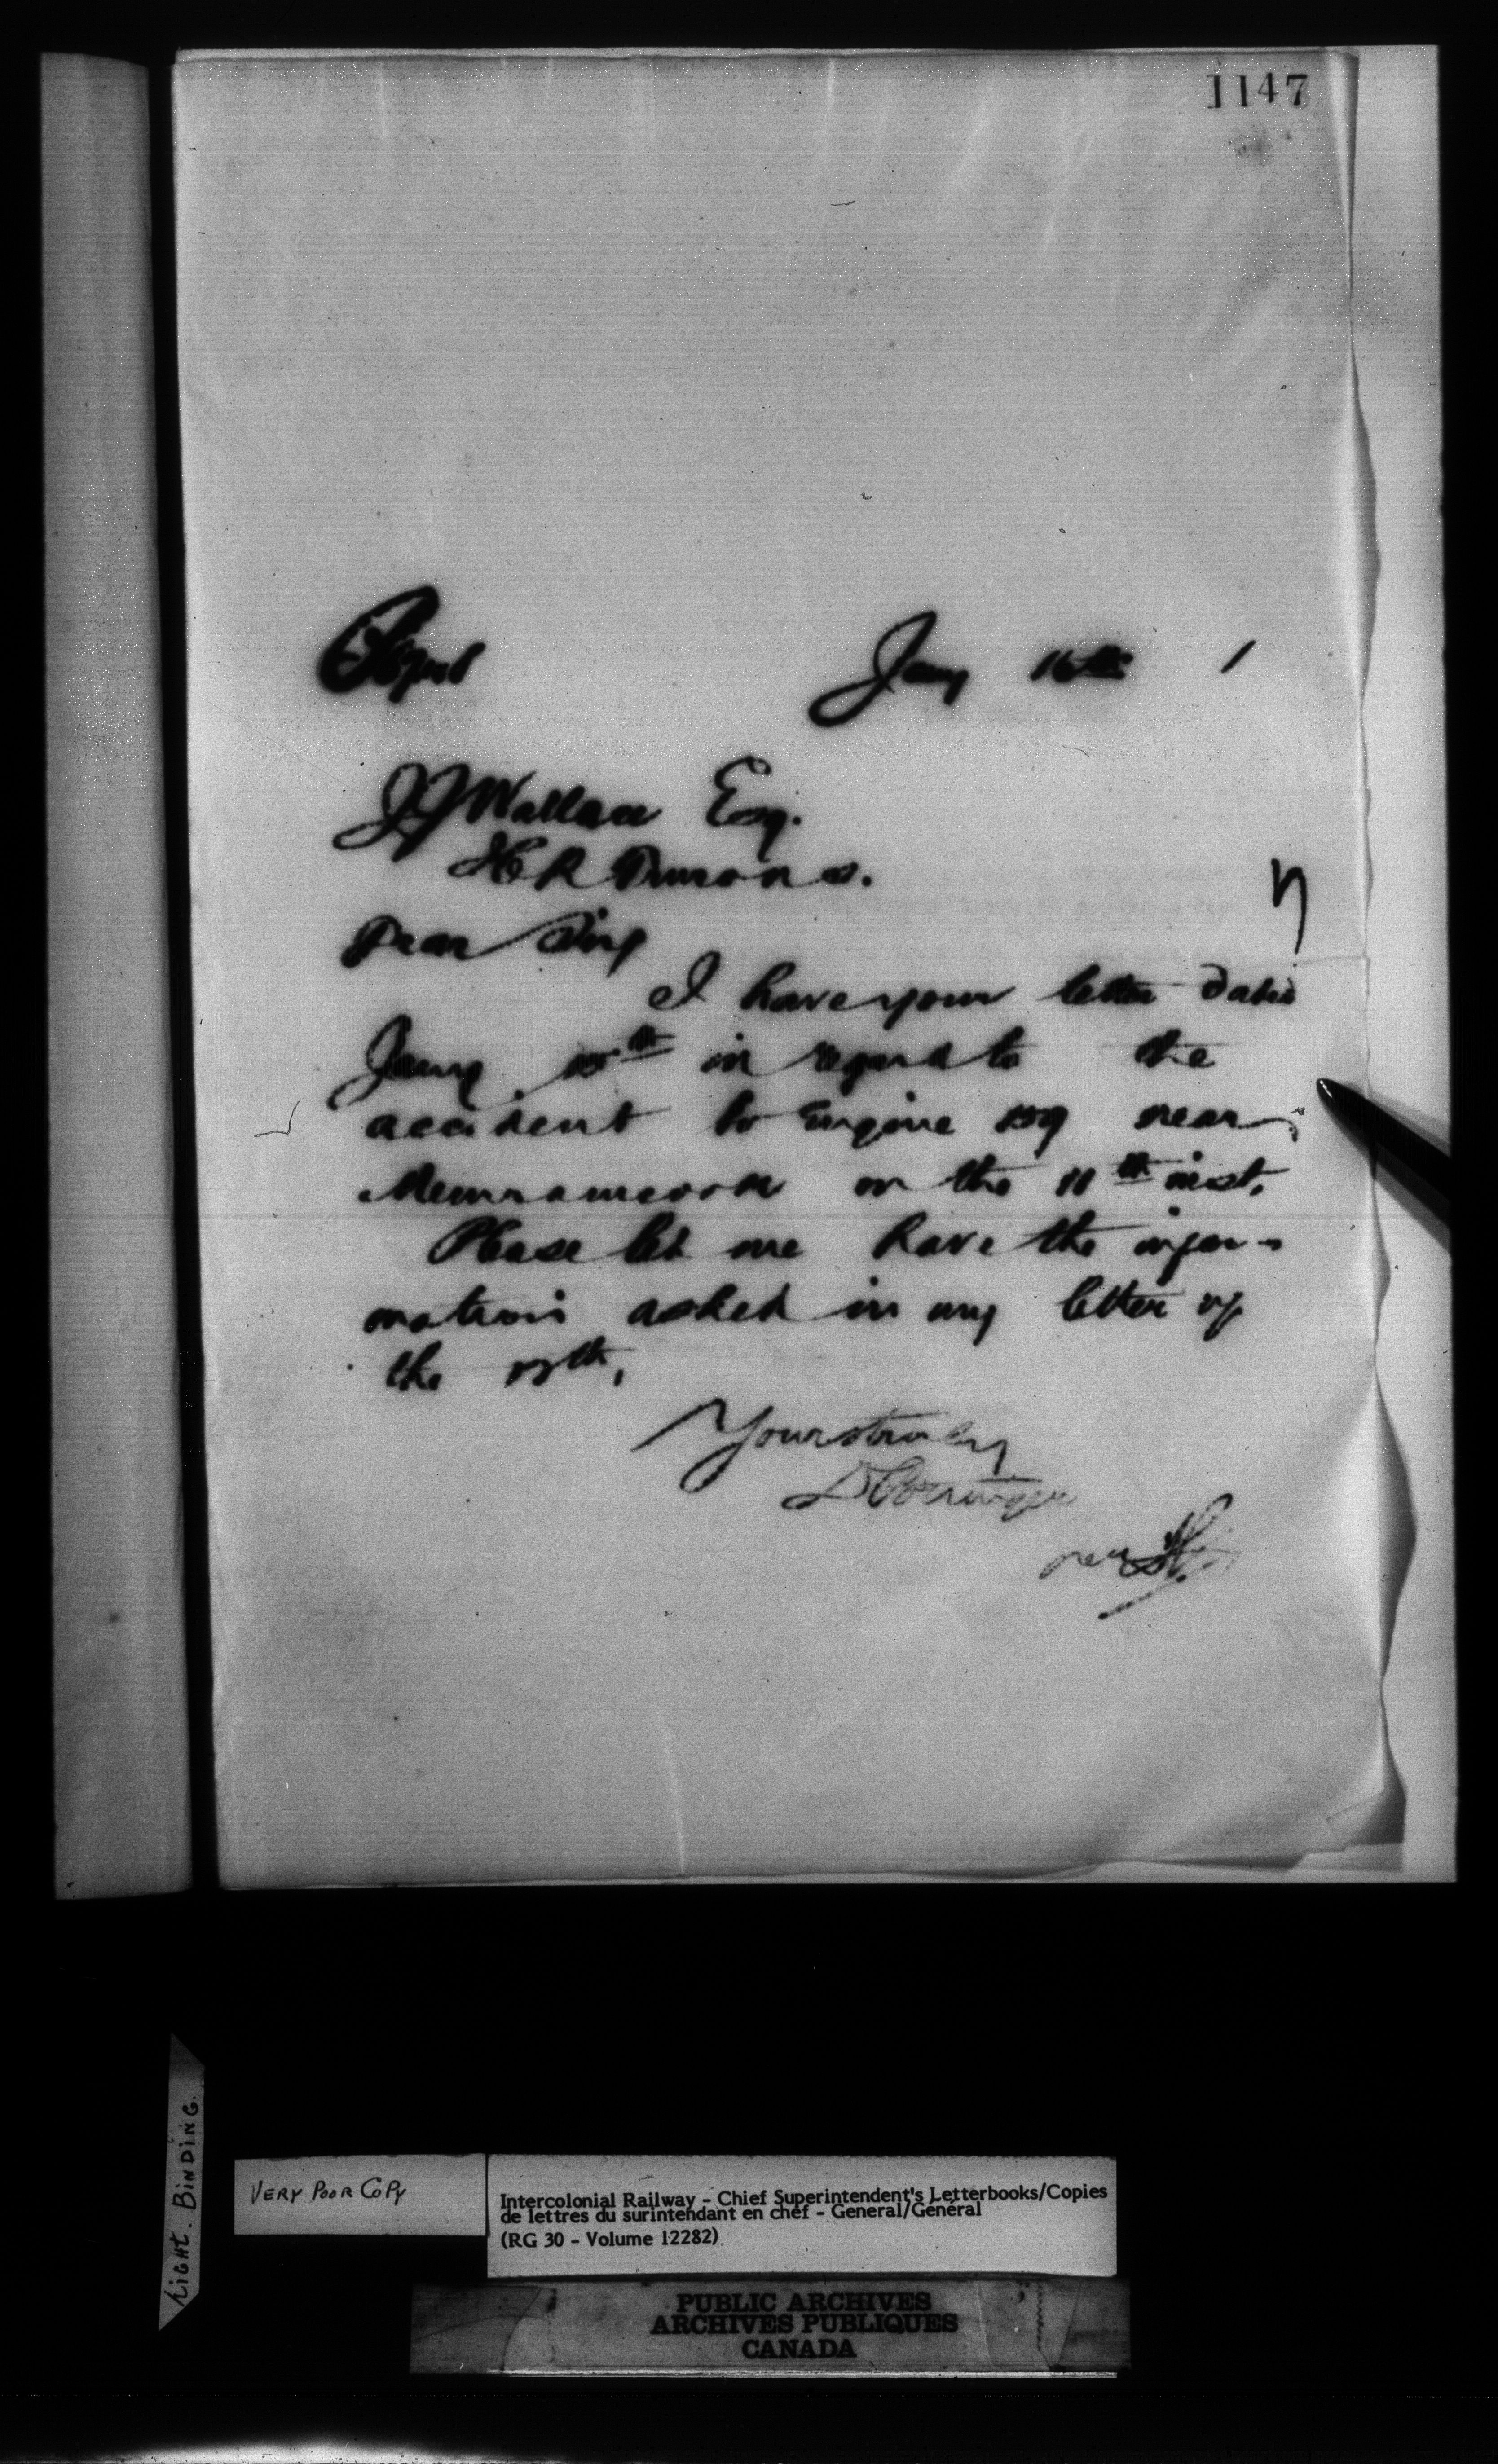 1147
Jany 16th 1
J J Wallace Esq.
Dear Sir
I have your letter dated
Jany 15th in regard to the
accident to Engine 159 near
Memramcook on the 11th inst.
Please let me have the infor-
mation asked in my letter of
the 13th,
Yours truly
D Pottinger
per
LIGHT. BINDING.
VERY POOR COPY
Intercolonial Railway - Chief Superintendent's Letterbooks/Copies
de lettres du surintendant en chef - General/Général
(RG 30 - Volume 12282)
PUBLIC ARCHIVES
ARCHIVES PUBLIQUES
CANADA